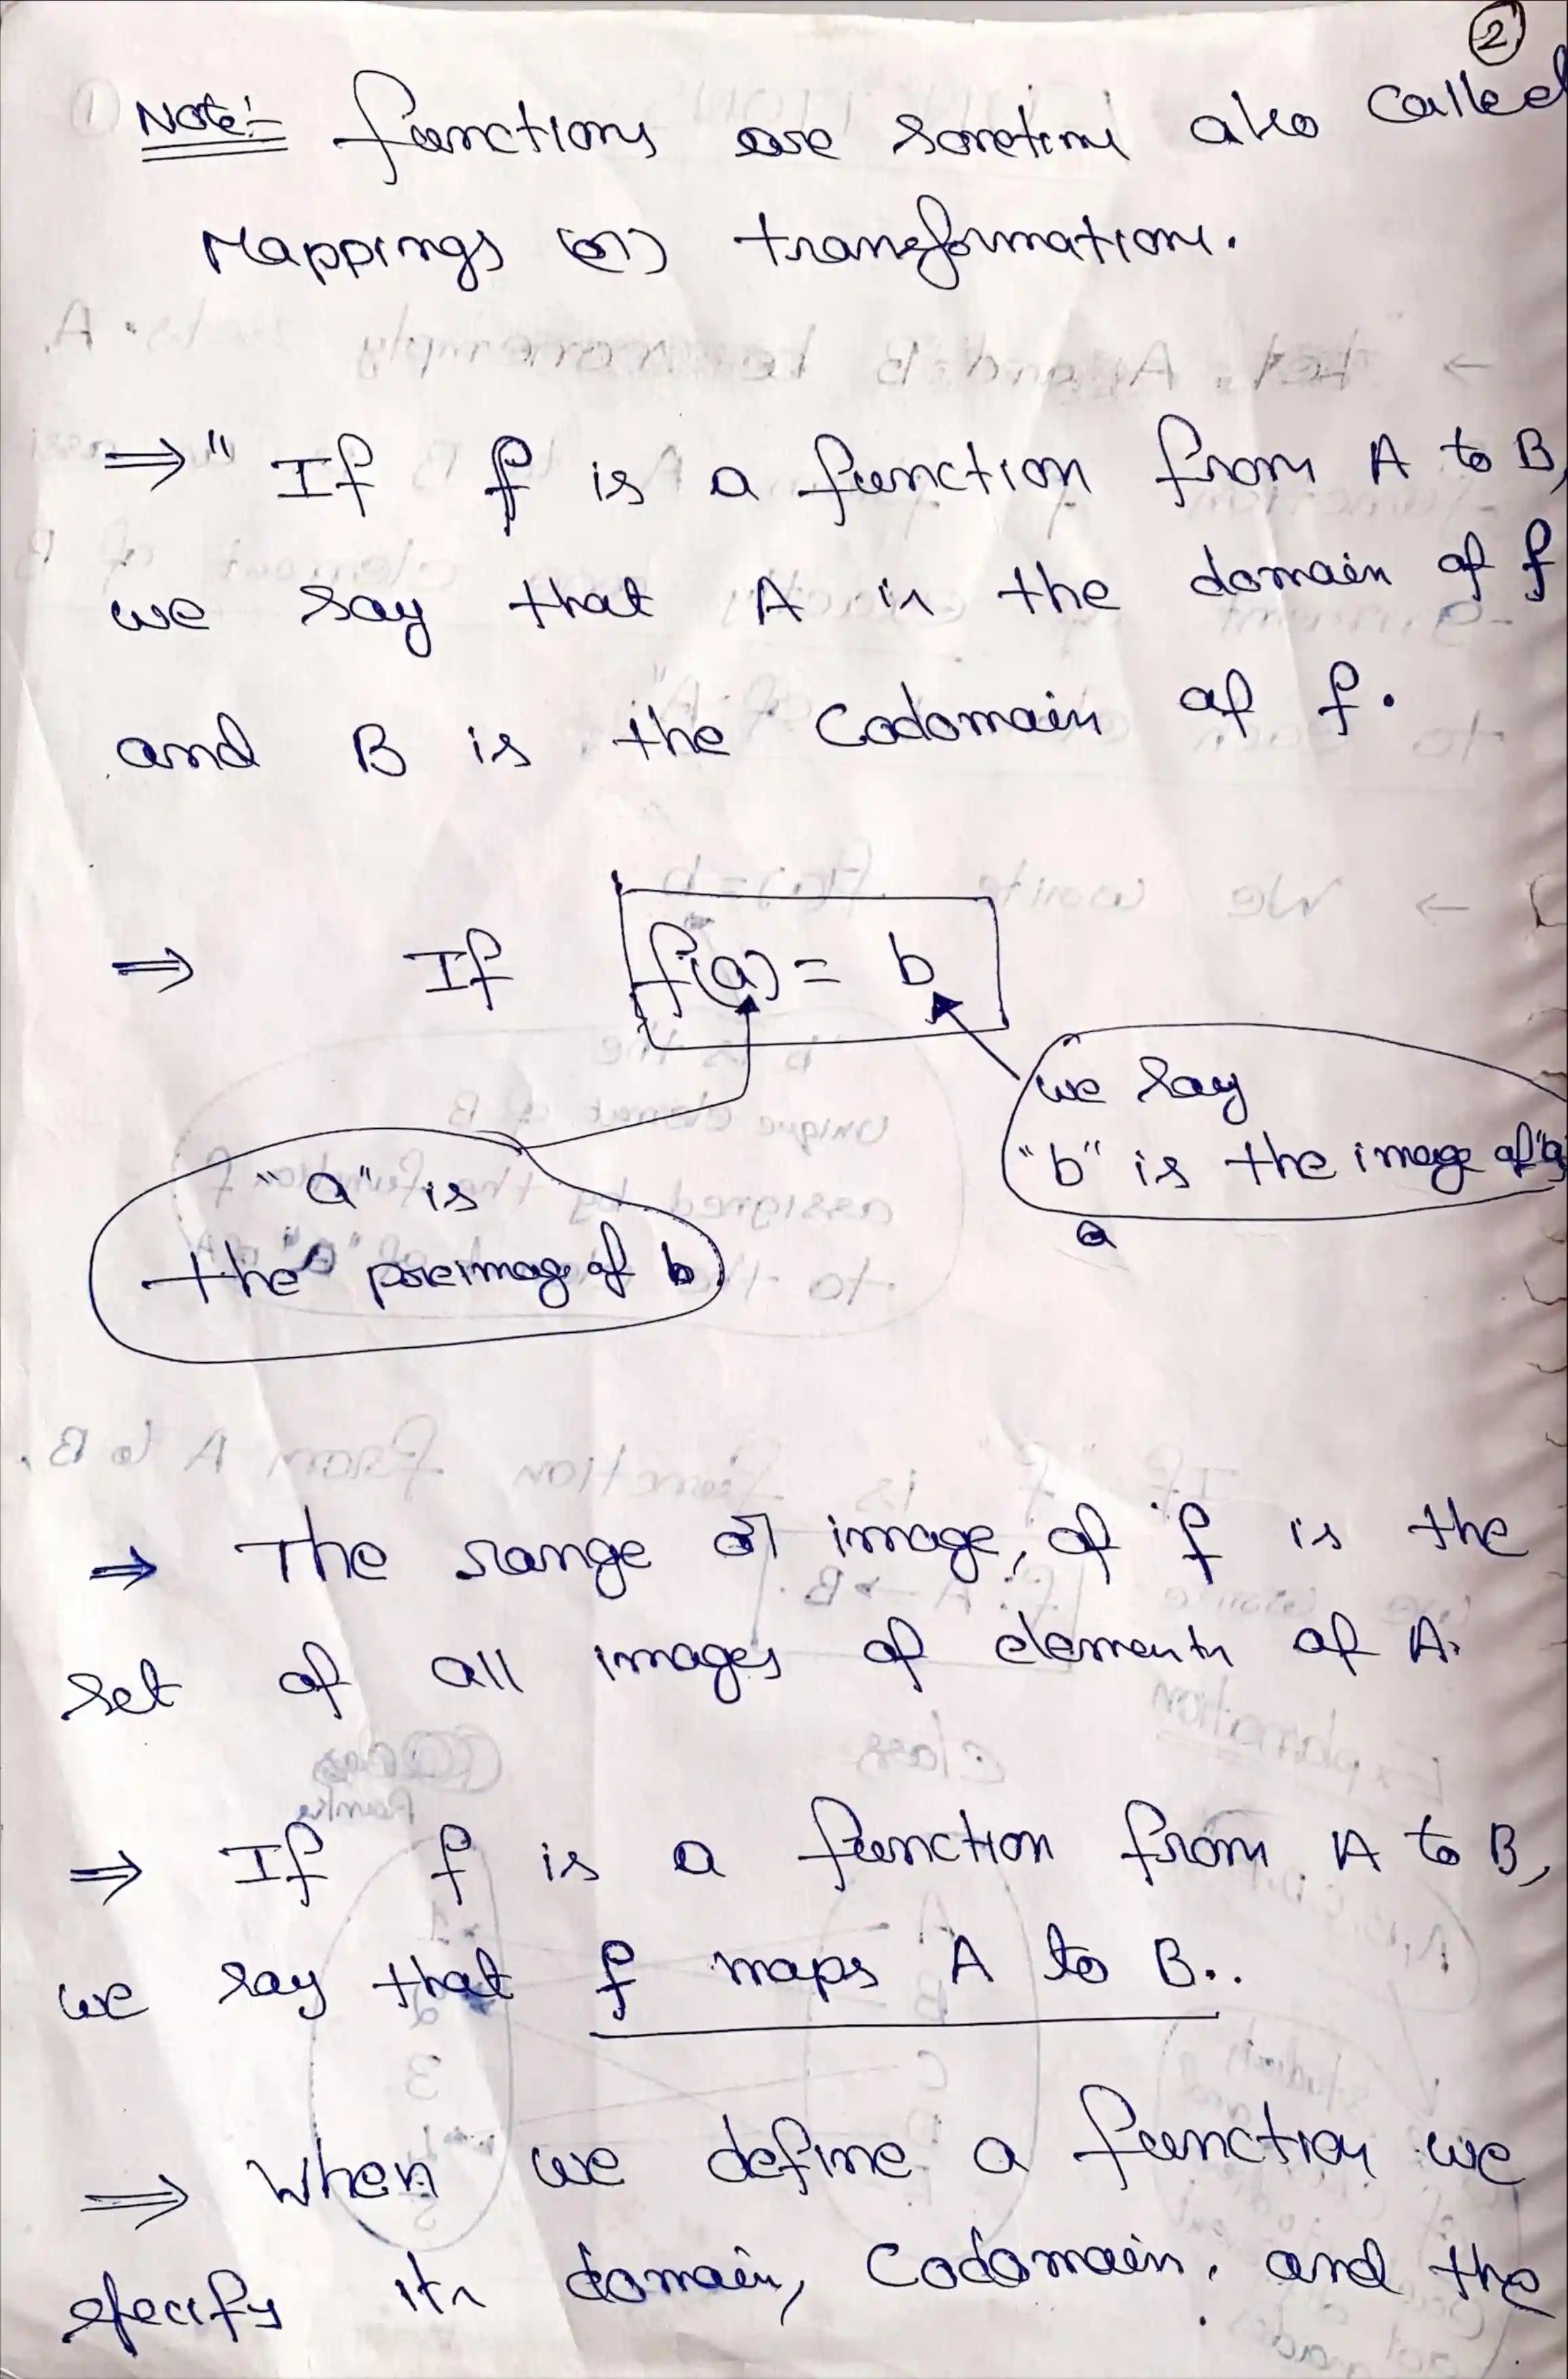 2
Note:- functions are sometime also called
Mappings (or) transformations.
⇒" If f is a function from A to B,
we say that A is the domain of f
and B is the Codomain of f.
⇒ If f(a) = b
we say
"b" is the image of "a
a
"a" is
the preimage of b
⇒ The range or image, of f is the
set of all images of elements of A.
⇒ If f is a function from A to B,
we say that f maps A to B..
⇒ When we define a function we
specify its domain, Codomain, and the